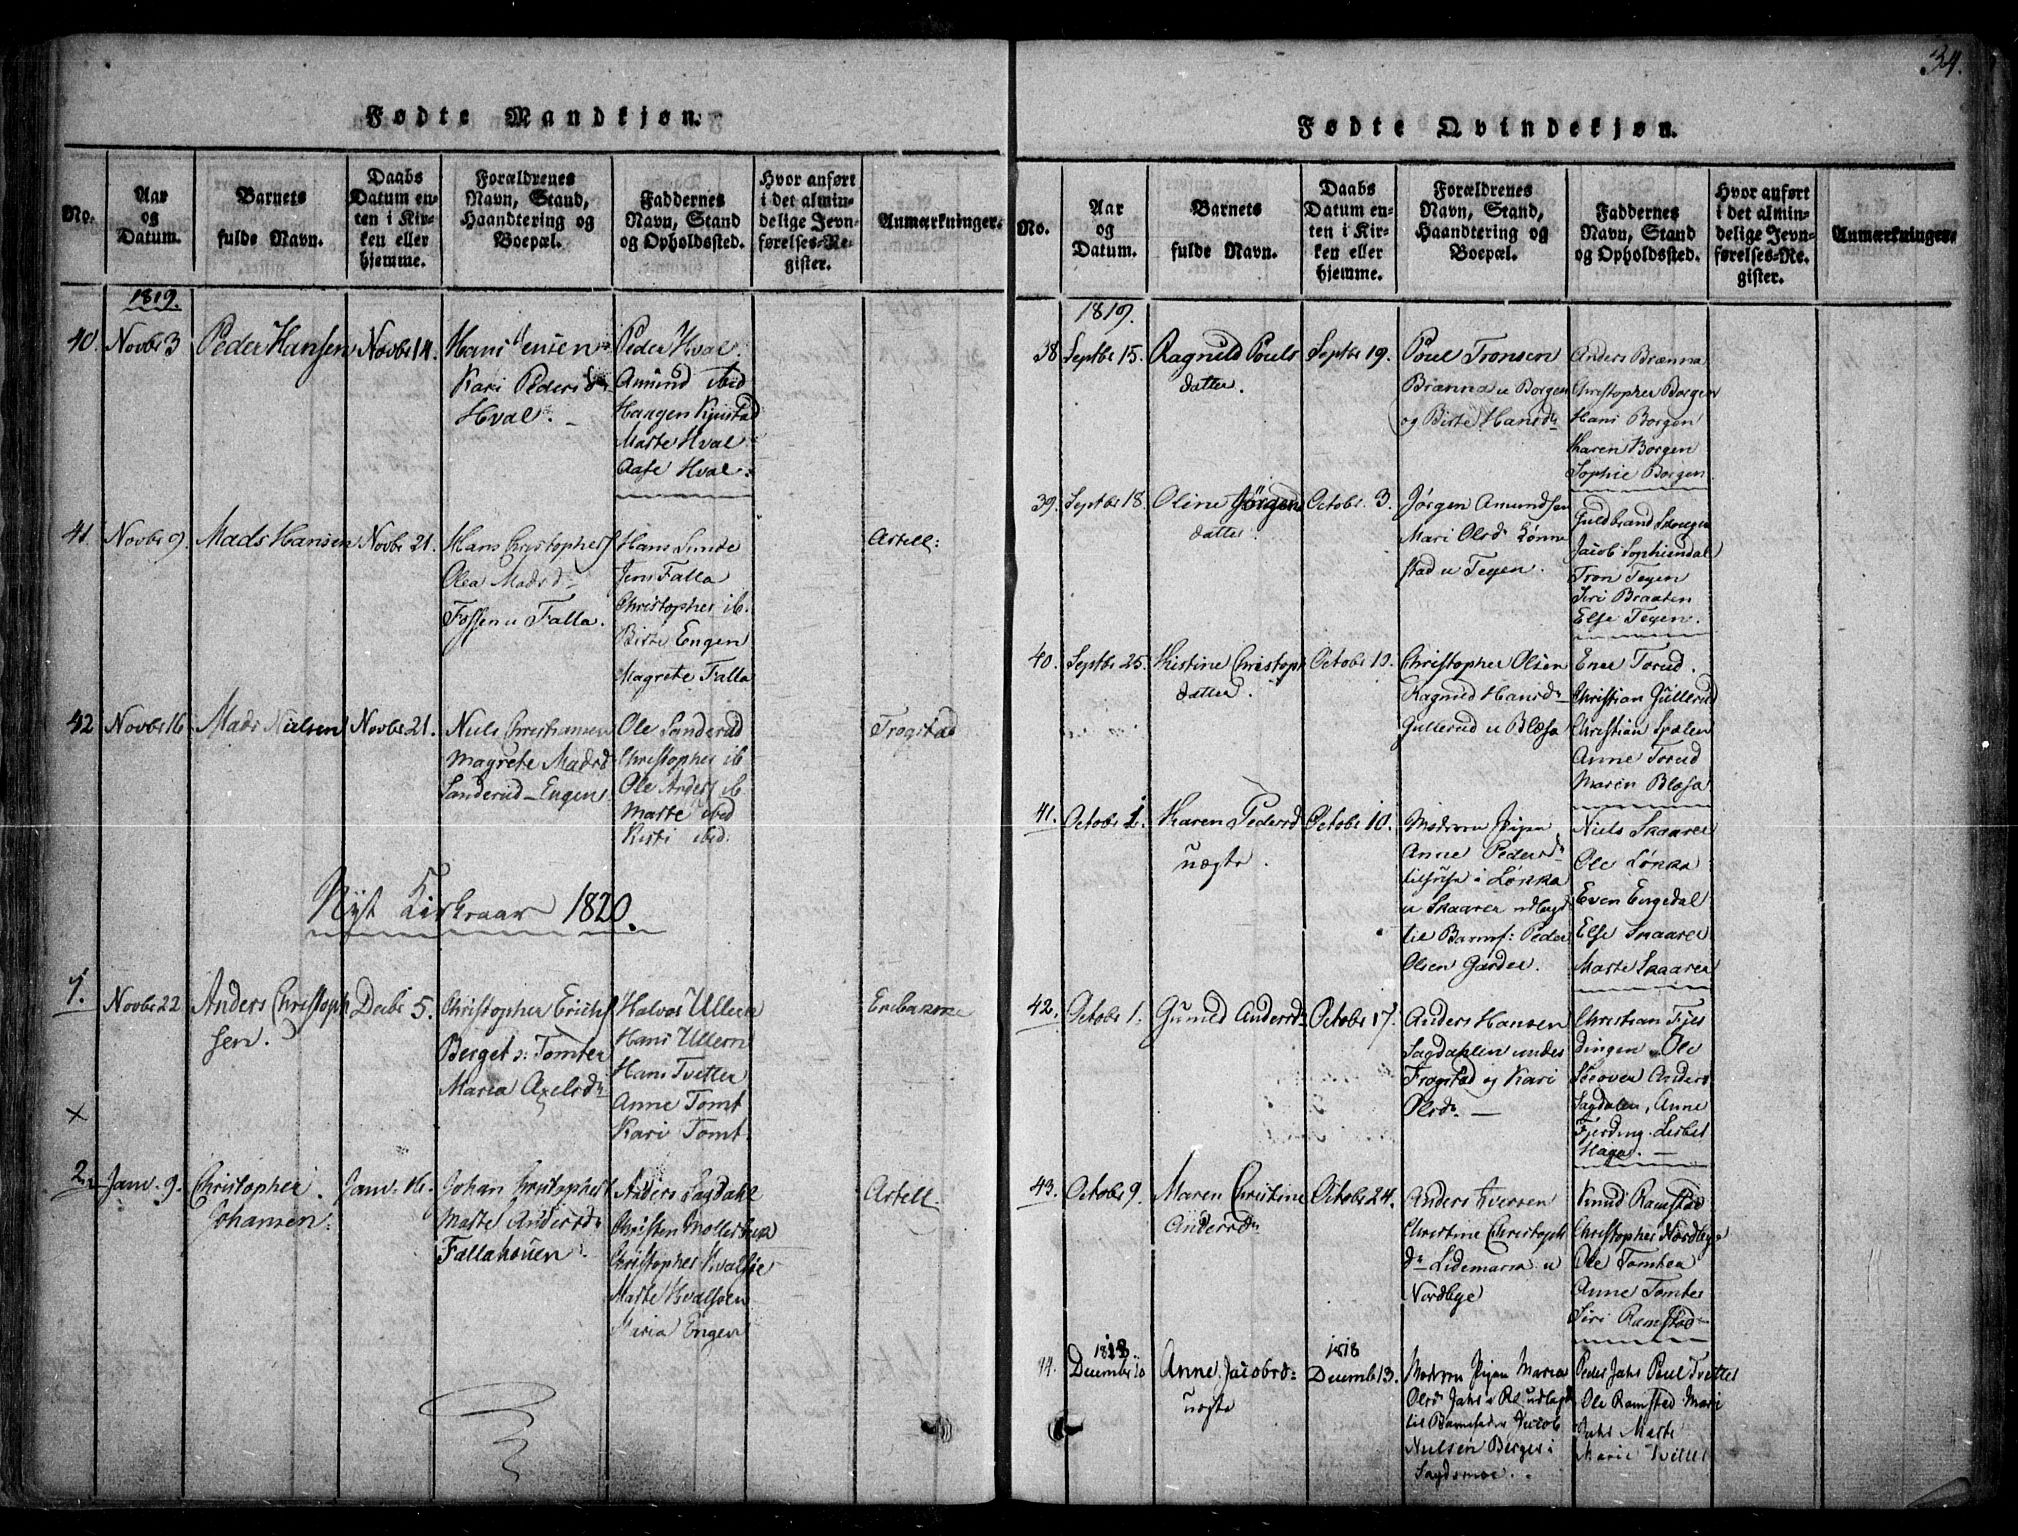 34.
Fødte Mandkjøn.
No.
Aar
og
Datum.
Barnets
fulde Navn.
Daabs
Datum en-
ten i Kir-
ken eller
hjemme.
Forældrenes
Navn, Stand,
Haandtering og
Boepæl.
Faddernes
Navn, Stand
og Opholdssted.
Hvor anført
i det almin-
delige Jevn-
førelses-Re-
gister.
Anmærkninger.
1819.
40. Novbr 3
Peder Hansen
Novbr 14.
Hans Jensen
Kari Pedersd
Hval.
Peder Hval
Amund ibid
Haagen Kjnstad
Marte Hval
Aase Hval
41. Novbr 9.
Mads Hansen
Novbr 21.
Hans Christophers
Olea Madsd
Fossen u Falla.
Hans Sunde
Jens Falla
Christopher ib.
Birte Engen
Magrete Falla
Astell:
42 Novbr 16.
Mads Nielsen
Novbr 21.
Niels Christiansen
Magrete Madsd
Sanderud - Engen
Ole Sanderud
Christopher ib
Ole Anders ib.
Marte ibid
Kisti ibid.
Frogstad
Nyt Kirkeaar 1820.
1. Novbr 22
Anders Christoph
sen.
Decbr 5.
Christopher Erichs
Berget v: Tomter
Maria Axelsd
Halvor Ullern
Hans Ullern
Hans Tvetter
Anne Tomt
Kari Tomt
Enebakke
×
2. Janv. 9.
Christopher
Johansen
Janv. 16.
Johan Christophers
Marte Andersd
Fallahouen
Anders Sagdahl
Christen
Christopher
Marte Kvalsoen
Maria Engen
Astell.
Fødte Qvindekjøn.
No.
Aar
og
Datum.
Barnets
fulde Navn.
Daabs
Datum en-
ten i Kir-
ken eller
hjemme.
Forældrenes
Navn, Stand,
Haandtering og
Boepæl.
Faddernes
Navn, Stand
og Opholdssted.
Hvor anført
i det almin-
delige Jevn-
førelses-Re-
gister.
Anmærkninger.
1819.
38 Septbr 15.
Ragnild Pouls
datter.
Septbr 19.
Poul Tronsen
Brænna u Borgen
og Birte Hansd
Anders Brænna
Christopher Borgen
Hans Borgen
Karen Borgen
Sophie Borgen
39. Septbr 18.
Oline Jørgens
datter.
Octobr. 3.
Jørgen Amundsen
Mari Olsd Lønne
stad u Teyen.
Guldbrand
Jacob Sophiendal
Tron Teyen
Siri Braaten
Else Teyen.
40. Septbr 25.
Kistine Christoph
datter.
Octobr 10.
Christopher Olsen
Ragnild Hansd
Gullerud u Blæsa
Ener Torud.
Christian Gullerud
Christian
Anne Torud
Maren Blæsa
41. Octobr 1.
Karen Pedersd
uægte.
Octobr 10.
Modren Pigen
Anne Pedersd
tilhuse i Løkka
u Skaarer udlagd
til Barnef: Peder
Olsen Garder.
Niels Skaarer
Ole Løkka
Even Engedal
Else Skaarer
Marte Skaarer
42. Octobr 1.
Gunild Andersd
Octobr 17.
Anders Hansen
Sagdahlen under
Frogstad og Kari
Olsd.
Christian Fjer
dingen Ole
Skover Anders
Sagdalen, Anne
Fjerding. Lisbet
Haga.
43. Octobr 9.
Maren Christine
Andersd
Octobr 24.
Anders Iversen
Christine Christoph
d. Lidemarka u
Nordbye
Knud Ramstad
Christopher Nordbye
Ole Tomter
Anne Tomter
Siri Ramstad
44. 1818
December 10
Anne Jacobsd:
uægte
1818
Decemb 13.
Modren Pigen Maria
Olsd Jahr udlagd
til Barnefader Jacob
Nielsen Berger i
Sagdsmoe.
Peder Jahr Poul Tvetter
Ole Ramstad Mari
Jahr Marte
Marie Tvetter